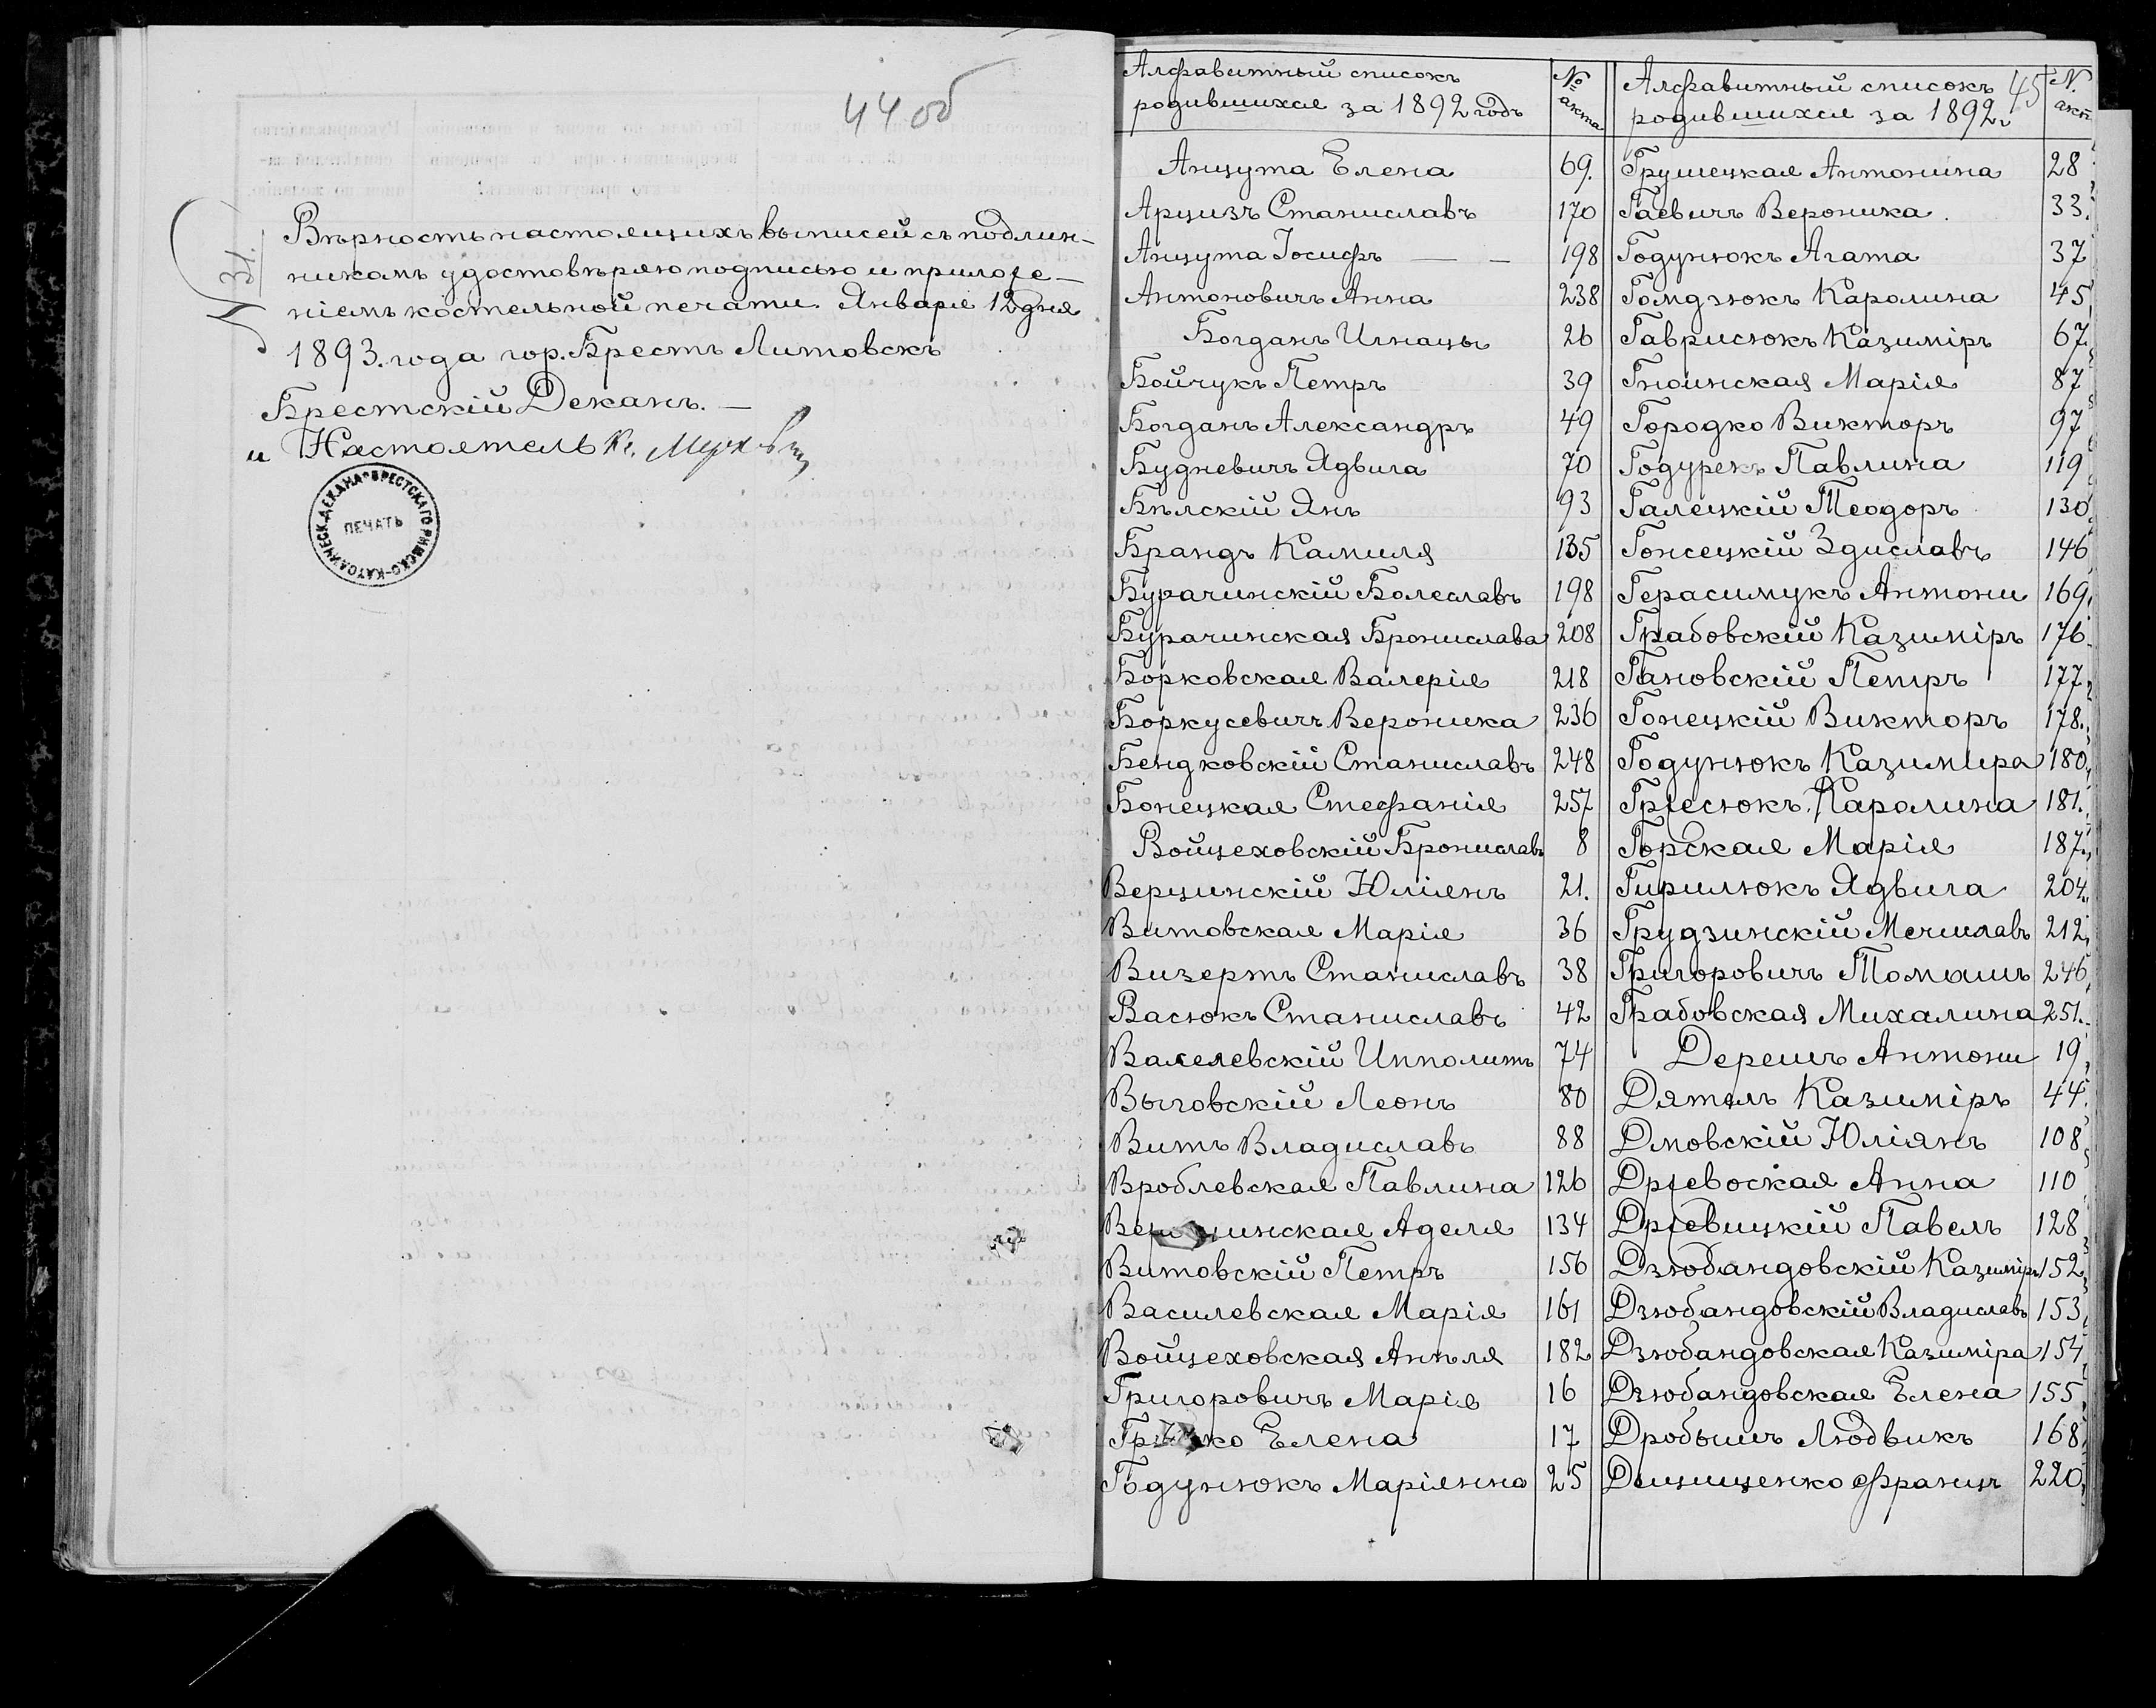 44 об
№ 31.
Вѣрность настоящихъ выписей съ подлин-
никомъ удостовѣряю подписью и приложе-
ніемъ костельной печати. Января 12 дня
1893. года гор. Брестъ Литовскъ
Брестскій Деканъ. —
и Настоятель Кс.
ПЕЧАТЬ
БРЕСТСКАГО РИМСКО-КАТОЛИЧЕСК. ДЕКАНА
45
Алфавитный списокъ
родившихся за 1892 годъ
№ акта
Анцута Елена 69.
Арцизъ Станиславъ 170
Анцута Іосифъ — — 198
Антоновичъ Анна 238
Богданъ Игнацы 26
Бойчукъ Петръ 39
Богданъ Александръ 49
Будневичъ Ядвига 70
Бѣлскій Янъ 93
Брандъ Камиля 135
Бурачинскій Болеславъ 198
Бурачинская Бронислава 208
Борковская Валерія 218
Боркусевичъ Вероника 236
Бендковскій Станиславъ 248
Бонецкая Стефанія 257
Войцеховскій Брониславъ 8
Верцинскій Юліянъ 21.
Витовская Марія 36
Визертъ Станиславъ 38
Васюкъ Станиславъ 42
Вакелевскій Ипполитъ 74
Выговскій Леонъ 80
Витъ Владиславъ 88
Вроблевская Павлина 126
Аделя 134
Витовскій Петръ 156
Василевская Марія 161
Войцеховская Анѣля 182
Григоровичъ Марія 16
Елена 17
Годунюкъ Маріянна 25
Алфавитный списокъ
родившихся за 1892 г
№ акт.
Грушецкая Антонина 28
Гаевичъ Вероника. 33.
Годунюкъ Агата 37
Гомдзюкъ Каролина 45
Гаврисюкъ Казиміръ 67
Гноинская Марія 87
Городко Викторъ 97
Годурекъ Павлина 119
Галецкій Теодоръ 130
Гонсецкій Здиславъ 146
Герасимукъ Антони 169
Грабовскій Казиміръ 176
Гановскій Петръ 177
Гонецкій Викторъ 178.
Годунюкъ Казимира 180
Гржесюкъ Каролина 181.
Горская Марія 187
Гирилюкъ Ядвига 204
Грудзинскій Мечиславъ 212
Григоровичъ Томашъ 246
Грабовская Михалина 251.
Дерешъ Антони 19
Дятелъ Казиміръ 44
Дмовскій Юліянъ 108
Држевоская Анна 110
Држевицкій Павелъ 128
Дзюбандовскій Казиміръ 152
Дзюбандовскій Владиславъ 153
Дзюбандовская Казиміра 154
Дзюбандовская Елена 155
Дробышъ Людвикъ 168
Францъ 220